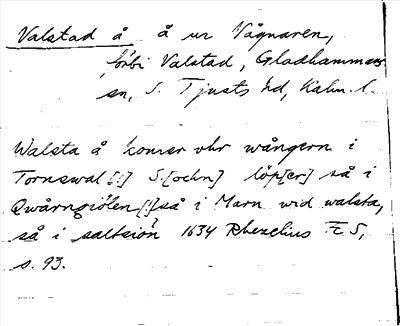 Valstad å å ur Vågnaren,
förbi Valstad, Gladhammars
sn, S. Tjusts hd, Kalm. l.
Walsta å komer vhr wångern i
Tornswal [!] S.[ochn] löp[er] så i
Qwårngiölen [!] så i Marn wid walsta,
så i saltsión 1634 Rhezelius F. S,
s. 93.